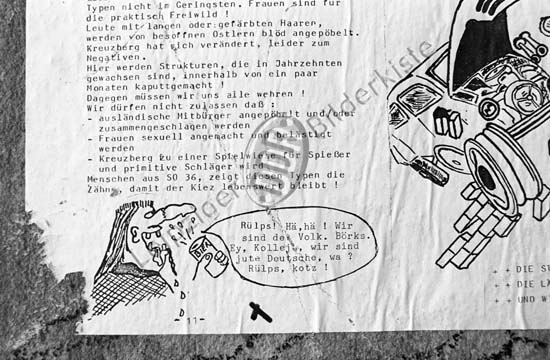 Typen nicht im Geringsten. Frauen sind für
die praktisch Freiwild !
Leute mit langen oder gefärbten Haaren,
werden von besoffnen Ostlern blöd angepöbelt.
Kreuzberg hat sich verändert, leider zum
Negativen.
Hier werden Strukturen, die in Jahrzehnten
gewachsen sind, innerhalb von ein paar
Monaten kaputtgemacht !
Dagegen müssen wir uns alle wehren !
Wir dürfen nicht zulassen daß :
- ausländische Mitbürger angepöbelt und/oder
zusammengeschlagen werden
- Frauen sexuell angemacht und belästigt
werden
- Kreuzberg zu einer Spielwiese für Spießer
und primitive Schläger wird
Menschen aus SO 36, zeigt diesen Typen die
Zähne, damit der Kiez lebenswert bleibt !
Rülps! Hä,hä ! Wir
sind das Volk. Börks.
Ey, Kolleje, wir sind
jute Deutsche, wa ?
Rülps, kotz !
- 11 -
+ + DIE ST
+ + DIE LÄ
+ + UND W
Umbruch Bilderkiste